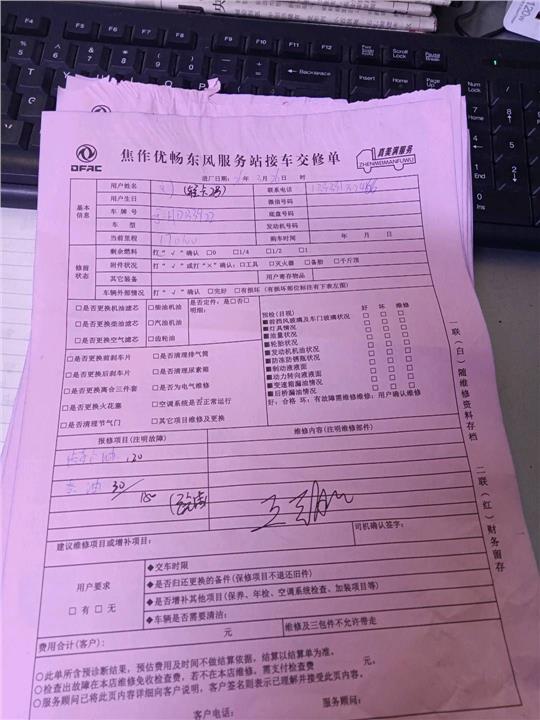 DFAC
焦作优畅东风服务站接车交修单
真美满服务
ZHENMEIMANFUWU
进厂日期: 年 月 日 时
基本信息
用户姓名 (轻卡28) 联系电话
用户生日 微信号码
车牌号 底盘号码
车型 发动机号码
当前里程 购车时间 年 月 日
修前状态
剩余燃料 打“√”确认 □0 □1/4 □1/2 □1
附件状况 打“√”或打“×”确认:□工具 □灭火器 □备胎 □千斤顶
其它装备 用户寄存物品
车辆外部情况 打“√”确认 □完好 □有损坏(有损坏部位标注有下表左图)
□是否更换机油滤芯 □柴油机油 是否定件:是□否□
□是否更换柴油滤芯 □汽油机油 明细:
□是否更换空气滤芯 □齿轮油
□是否更换前刹车片 □是否清理排气筒
□是否更换后刹车片 □是否清理尿素箱
□是否更换离合三件套 □是否为电气维修
□是否更换火花塞 □空调系统是否正常运行
□是否清理节气门 □其它项目维修及更换
预检(目视) 好 坏 维修
■前挡风玻璃及车门玻璃状况 □ □ □
■灯具情况 □ □ □
■油量状况 □ □ □
■轮胎状况 □ □ □
■发动机机油状况 □ □ □
■防冻防锈瓶状况 □ □ □
■制动液液面 □ □ □
■动力转向液液面 □ □ □
■变速箱漏油情况 □ □ □
■后桥漏油情况 □ □ □
好:合格 坏:有故障需维修维修:用户确认维修
报修项目(注明故障) 维修内容(注明维修部件)
120
30/
180
建议维修项目或增补项目: 司机确认签字:
用户要求
□有 □无
◆交车时限
◆是否归还更换的备件(保修项目不退还旧件)
◆是否增补其他项目(保养、年检、空调系统检查、加装项目等)
◆车辆是否需要清洁:
费用合计(客户): 元 维修及三包件不允许带走
○此单所含预诊断结果,预估费用及时间不做结算依据,结算以结算单为准。
○检查出故障在本店维修免收检查费,若不在本店维修,需支付检查费 元。
○服务顾问已将此页内容详细向客户说明,客户签名则表示已理解并接受此页内容。
客户电话: 服务顾问:
一联(白)随维修资料存档 二联(红)财务留存